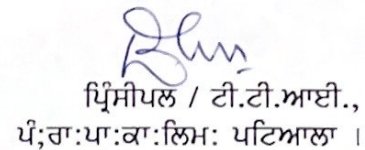 ਪ੍ਰਿੰਸੀਪਲ / ਟੀ.ਟੀ.ਆਈ.,
ਪੰ;ਰਾ:ਪਾ:ਕਾ:ਲਿਮ: ਪਟਿਆਲਾ ।